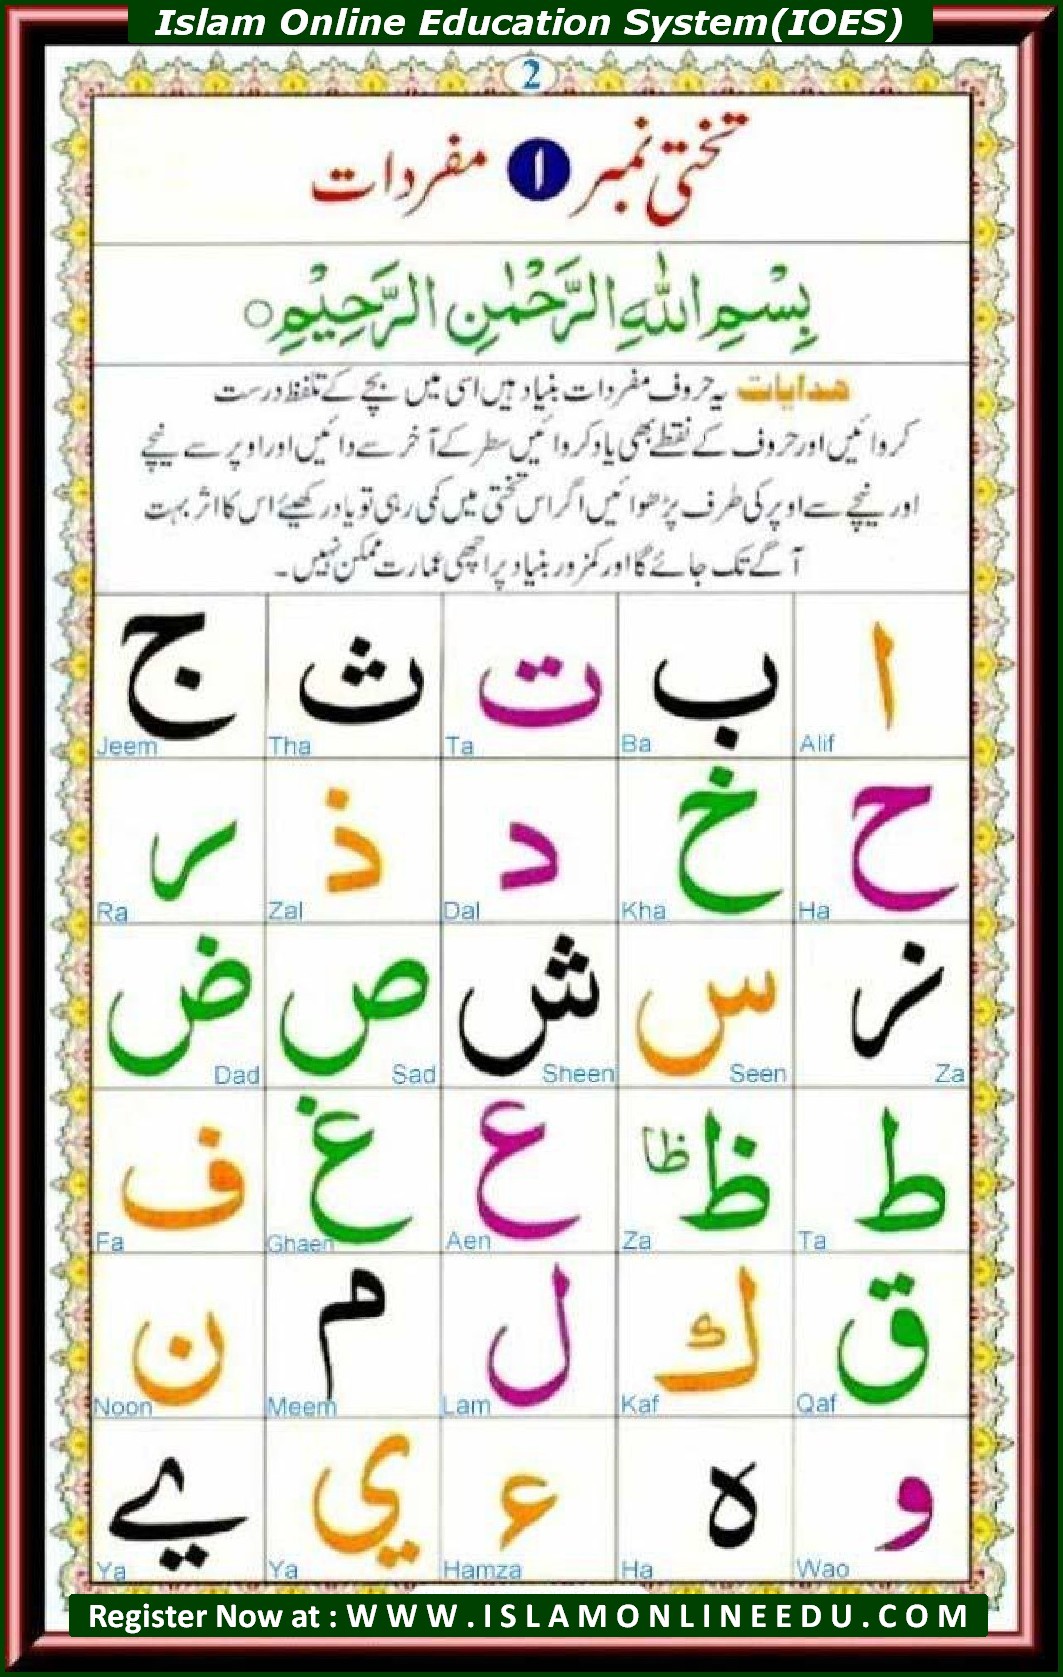 Islam Online Education System(IOES)
2
تختی نمبر ۱ مفردات
بِسْمِ اللهِ الرَّحْمٰنِ الرَّحِيْمِ
ھدایات یہ حروف مفردات بنیاد ہیں اسی میں بچے کے تلفظ درست
کروائیں اور حروف کے نقطے بھی یاد کروائیں سطر کے آخر سے دائیں اور اوپر سے نیچے
اور نیچے سے اوپر کی طرف پڑھوائیں اگر اس تختی میں کمی رہی تو یاد رکھیئے اس کا اثر بہت
آگے تک جائے گا اور کمزور بنیاد پر اچھی عمارت ممکن نہیں۔
ا ب ت ث ج
Alif Ba Ta Tha Jeem
ح خ د ذ ر
Ha Kha Dal Zal Ra
ز س ش ص ض
Za Seen Sheen Sad Dad
ط ظ ظا ع غ ف
Ta Za Aen Ghaen Fa
ق ك ل م ن
Qaf Kaf Lam Meem Noon
و ہ ء ي ے
Wao Ha Hamza Ya Ya
Register Now at : WWW.ISLAMONLINEEDU.COM